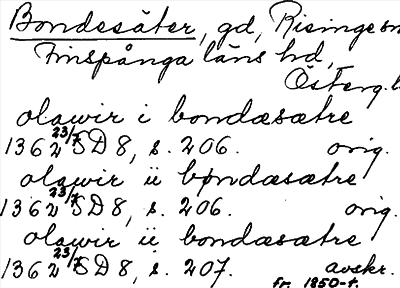 Bondesäter, gd, Risinge sn
Finspånga läns hd,
Österg.l
olawir i bondæsætre
1362 23/7 SD 8, s. 206. orig.
olawir ii bondæsætre
1362 23/7 SD 8, s. 206. orig.
olawir ii bondæsætre
1362 23/7 SD 8, s. 207. avskr.
fr. 1850-t.